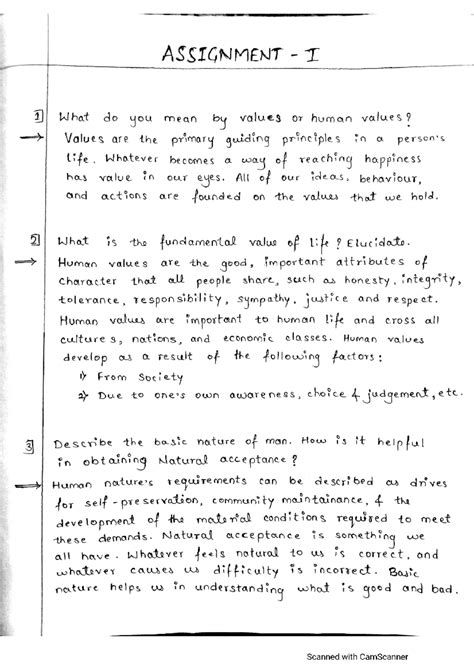 ASSIGNMENT - I
1 What do you mean by values or human values?
→ Values are the primary guiding principles in a person's
life. Whatever becomes a way of reaching happiness
has value in our eyes. All of our ideas, behaviour,
and actions are founded on the values that we hold.
2 What is the fundamental value of life? Elucidate.
→ Human values are the good, important attributes of
character that all people share, such as honesty, integrity,
tolerance, responsibility, sympathy, justice and respect.
Human values are important to human life and cross all
cultures, nations, and economic classes. Human values
develop as a result of the following factors:
1) From Society
2) Due to one's own awareness, choice & judgement, etc.
3 Describe the basic nature of man. How is it helpful
in obtaining Natural acceptance?
→ Human nature's requirements can be described as drives
for self-preservation, community maintainance, & the
development of the material conditions required to meet
these demands. Natural acceptance is something we
all have. Whatever feels natural to us is correct, and
whatever causes us difficulty is incorrect. Basic
nature helps us in understanding what is good and bad.
Scanned with CamScanner